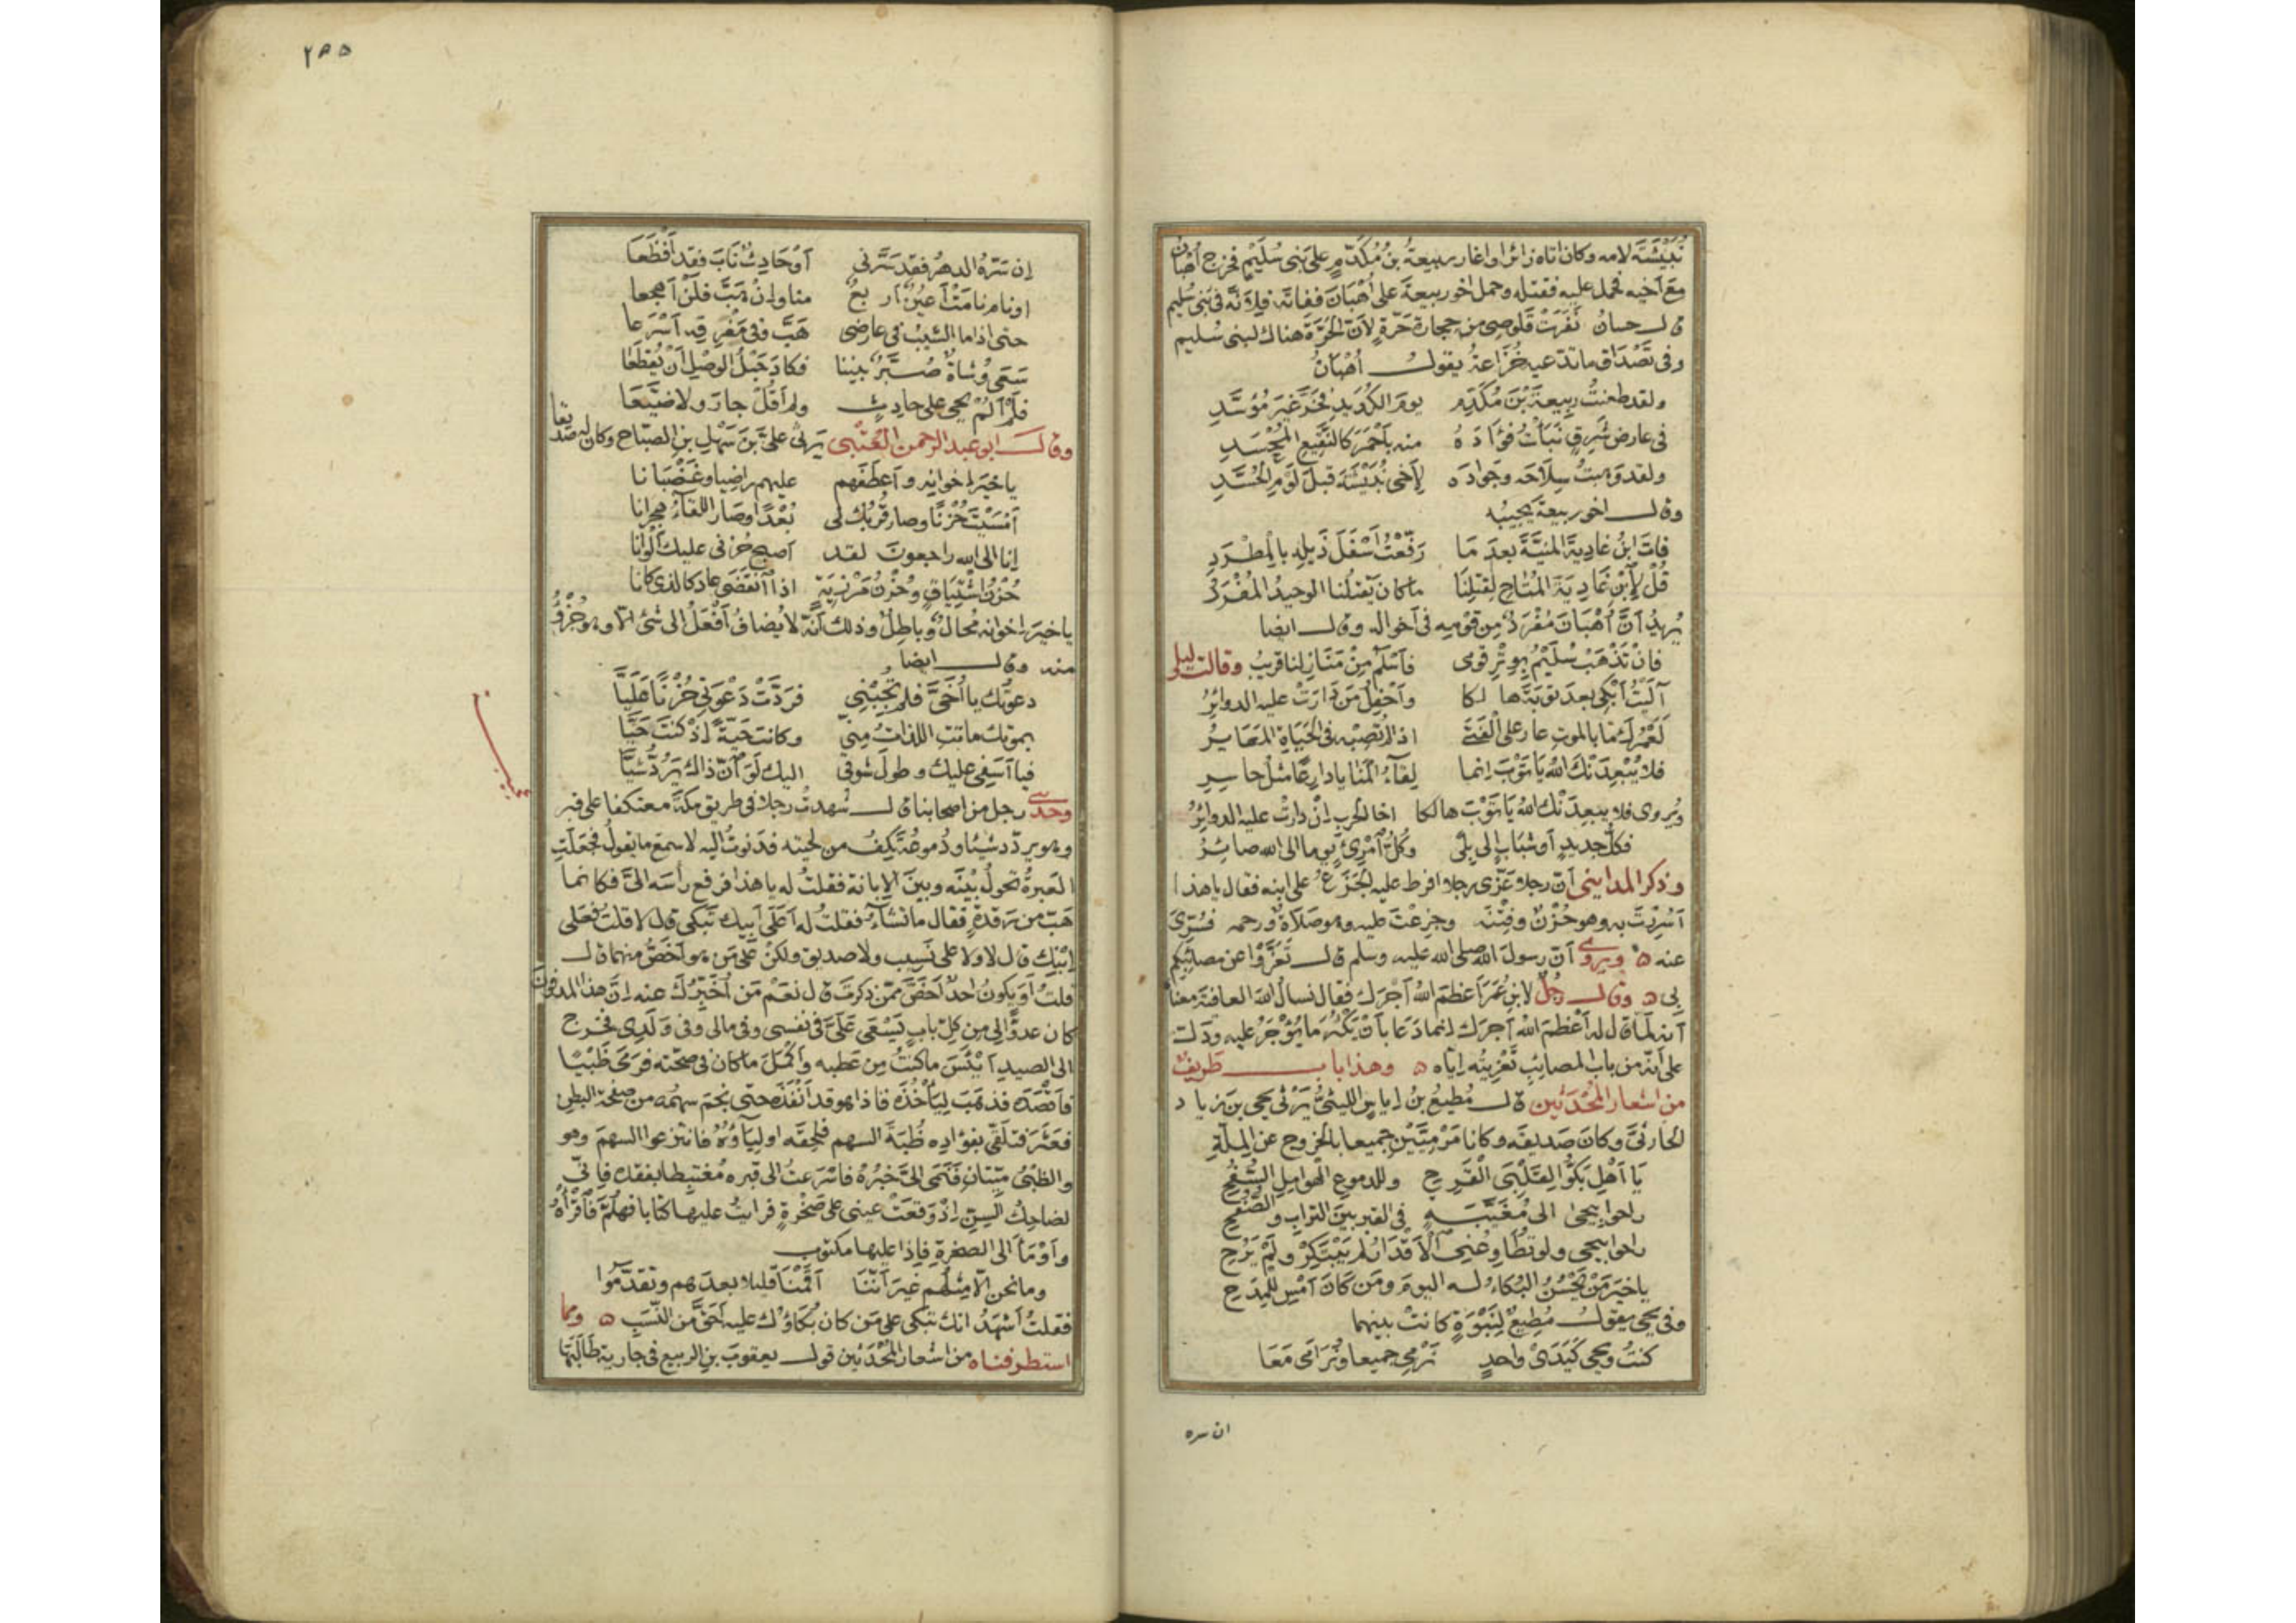 نُبَيْشَةَ لامه وكان اتاه زائرا واغار ربيعةُ بنُ مُكَدَّمٍ على بنى سُلَيْمٍ فخرج أهْبَانُ
مع أخيه فحمل عليه فقتله وحمل اخو ربيعةَ على أُهْبَانَ ففاته فلانّه فى بنى سُليم
قال حسان نَفَرَتْ قَلوصى من حجارة حَرّةٍ لأنّ الحَرّة هناك لبنى سُليم
وفى تَصْدَاق ما تدّعيه خُزَاعةُ يقول أُهْبَانُ
ولقد طعنتُ ربيعةَ بْنَ مُكَدَّمٍ يومَ الكَديدِ فخَرَّ غيرَ مُوَسَّدِ
فى عارضٍ شَرِقٍ بَنَاتُ فؤادَهُ منه بأحْمَرَ كالنَّقِيعِ المُجْسَدِ
ولقد وهبتُ سِلَاحَه وجَوادَه لِأخى نُبَيْشَةَ قبلَ لَوْمِ الحُسَّدِ
وقال اخو ربيعة يُجيبُه
فاتَ ابنُ غاديةَ المنيّةَ بعدَ مَا رَفّعْتُ أسْفَلَ ذَيلِه بالمِطْرَدِ
قُلْ لِابْنِ غَادِيَةَ المُتاحِ لِقتلِنَا ما كان يَقتُلنا الوحيدُ المُفْرَدُ
يُريدُ أنَّ أُهْبَانَ مُفْرَدٌ من قَوْمِه فى أخواله وقال ايضا
فإنْ تَذْهَبْ سُلَيْمٌ بِوِتْرِ قومى فأسْلَمُ مِنْ مَنَازِلنا قريبُ وقالت ليلى
آلَيْتُ أبْكى بعدَ توبةَ هالكا وأحْفِلُ مَن دَارَتْ عليه الدوائِرُ
لَعَمْرُكَ ما بالموتِ عار على الفَتَى اذا لم تُصِبْه فى الحَيَاةِ المَعَايِرُ
فلا يُبْعِدَنْكَ اللهُ يَا تَوْبَ إنما لِقَآءُ المنايا دارِعًا مثلُ حاسِرِ
ويُروى فلا يبعِدَنْك اللهُ يَا تَوْبَ هالكا اخا الحَربِ إنْ دارتْ عليه الدوائرُ
فكلُّ جديدٍ أو شَبَابٍ إلى بِلًى وكُلُّ آمْرِئٍ يوما إلى الله صائِرُ
وذكر المداينى أن رجلا عَزّى رجلا افرط عليه الجَزَعُ على ابنه فقال يا هذا
أسُرِرْتَ به وهو حُزْنٌ وفِتْنَة وجزِعْتَ عليه وهو صَلاةٌ ورحمه فسُرّىَ
عنه ۵ ويروى أن رسولَ الله صلى الله عليه وسلم قال تَعَزَّوْا عن مصائبِكم
بى ۵ وقال رجُلٌ لابن عُمَرَ أعْظَمَ اللهُ أجْرَك فقال نسأل الله العافية معناه
أنه لمّا قال له أعْظَمَ الله أجرَك إنما دَعَا بأنْ يَكْثُرَ ما يُؤْجَرُ عليه ودَلَّت
على أنّه من باب المصائبِ تَعْزِيَتُه إيّاه ۵ وهذا باب طَريفٌ
من اشعار المُحْدَثين قال مُطيعُ بنُ إياسٍ الليثىُّ يَرْثى يحيى بنَ زياد
الحارثىّ وكان صَديقَه وكانا مَرْمِيَّيْنِ جميعا بالخروج عن المِلّةِ
يَا أهْلِ بَكُّوا لِقَلْبِىَ القَرِحِ وللدموعِ الهَوامِلِ السُّفُحِ
راحوا بيحيى الى مُغَيَّبَةٍ فى القبر بين التراب والصُّفُحِ
راحوا بيحيى ولو تُطَاوِعُنى آلأقْدَارُ لم يَبْتَكِرْ ولَمْ يَرُحِ
يا خيرَ مَنْ يَحْسُنُ البُكاءُ له اليومَ ومَن كَانَ أمْسِ للمِدَحِ
وفى يحيى يقول مُطيعٌ لِنَبْوَةٍ كانتْ بينهما
كنتُ ويحيى كَيَدَىْ واحدٍ نَرْمِى جميعا ونُرَامَى مَعَا
ان سره
٢٥٥
إن سَرّهُ الدهرُ فقد سَرّنى أوْ حَادِثٌ نَابَ فقد أفْظَعَا
او نام نامَتْ أعيُنٌ اربعٌ منا وإنْ هَبَّ فلَنْ أهجعا
حتى اذا ما الشيبُ فى عارضى هَبَّ وفى مَفْرِقِه أسْرَعا
سَعَى وُشاةٌ صُبَّرٌ بيننا فكادَ حَبْلُ الوصْلِ أنْ يُقطَعَا
فَلَمْ ألُمْ يحيى على حادثٍ ولم أقُلْ جارَ ولا ضَيَّعَا
وقال ابو عبد الرحمن العُتْبى يَرثى علىَّ بنَ سَهْلِ بنِ الصبّاح وكان له صديقا
يا خيرَ إخوانِه وأعطَفَهم عليهم راضيا وغَضْبَانا
أمْسَيْتَ حُزْنًا وصار قُرْبُك لى بُعْدًا وصَار اللقآءُ هِجرانا
إنا الى الله راجعونَ لقد أصبح حُزنى عليك ألْوَانا
حُزْنُ اشْتِيَاقٍ وحُزْنُ مَرْزِيَةٍ اذا آنقَضَى عاد كالذى كانا
يا خيرَ إخوانه مُحالٌ وباطِلٌ وذلك أنّه لا يُضافُ أفْعَلُ الى شئ الّا وهو جُزْؤٌ
منه وقال ايضا
دعوتُك يا أُخَىَّ فلم تُجِبْنِى فرَدَّتْ دَعْوَتى حُزْنًا عَلَيَّا
بموتك ماتتِ اللذاتُ مِنّى وكانت حَيّةً إذْ كنتَ حَيًّا
فيا أسَفِى عليك وطولَ شوقى اليك لَوَ آنّ ذاك يَرُدُّ شَيًّا
وحدثنى رجل من اصحابنا قال شهدتُ رجلا فى طريق مكّة معتكفا على قبر
وهو يردّد شيئا ودُموعُه تَكِفُ من لحيته فدَنوتُ اليه لاسمعَ ما يقولُ فجعلَتِ
العَبرةُ تحولُ بيْنَه وبين الإبانة فقلتُ له يا هذا فرفع رأسَه الىَّ فكانما
هَبّ من رَقدةٍ فقال ما تشآء فقلتُ له أعَلَى أبيك تبكى قال لا قلتُ فعَلى
ابنِك قال لا ولا على نَسِيب ولا صديق ولكنْ عَلَى مَن هو أخَصُّ منهما قال
قلتُ أوَ يكونُ احدٌ أخَصَّ ممّن ذكرتَ قال نعَمْ مَن أُخْبِرُك عنه إنّ هذا المدفونَ
كان عدوًّا لى من كلّ بابٍ يَسْعَى عَلَىَّ فى نفسى وفى مالى وفى وَلَدِى فخرج
الى الصيد أيْئَسَ ما كنتُ مِن عَطَبِه وأكْمَلَ ما كان فى صحّته فرمَى ظَبْيًا
فأقْصَدَه فذهَبَ ليَأخُذَه فاذا هو قد أنْفَذَه حتى نجَمَ سهمُه من صَفْحة البطن
فعَثَرَ فتلَقّى بفؤادِه ظُبَةَ السهم فلحِقَه اوليَاؤُهُ فانتزعوا السهمَ وهو
والظبْىُ ميّتانِ فنَمَى الىَّ خبرُهُ فاسْرَعتُ الى قبره مُغتبِطا بفقدِه فإنّى
لضاحِكُ السِّنِ إذْ وقعَتْ عينى على صَخْرةٍ فرايتُ عليها كتابا فهلُمَّ فاقْرَأهُ
وأوْمَأَ الى الصخرة فإذا عليها مكتوب
وما نحن الّا مِثلُهم غيرَ أنّنا أقَمْنَا قليلا بعدَهم وتقدّمُوا
فقلتُ أشهَدُ انك تبكى على مَن كان بُكاؤُك عليه أحَقَّ من النّسَبِ ۵ ومما
استطرفناه من اشعار المُحْدَثين قول يعقوبَ بنِ الربيع فى جارية طَالَبَها